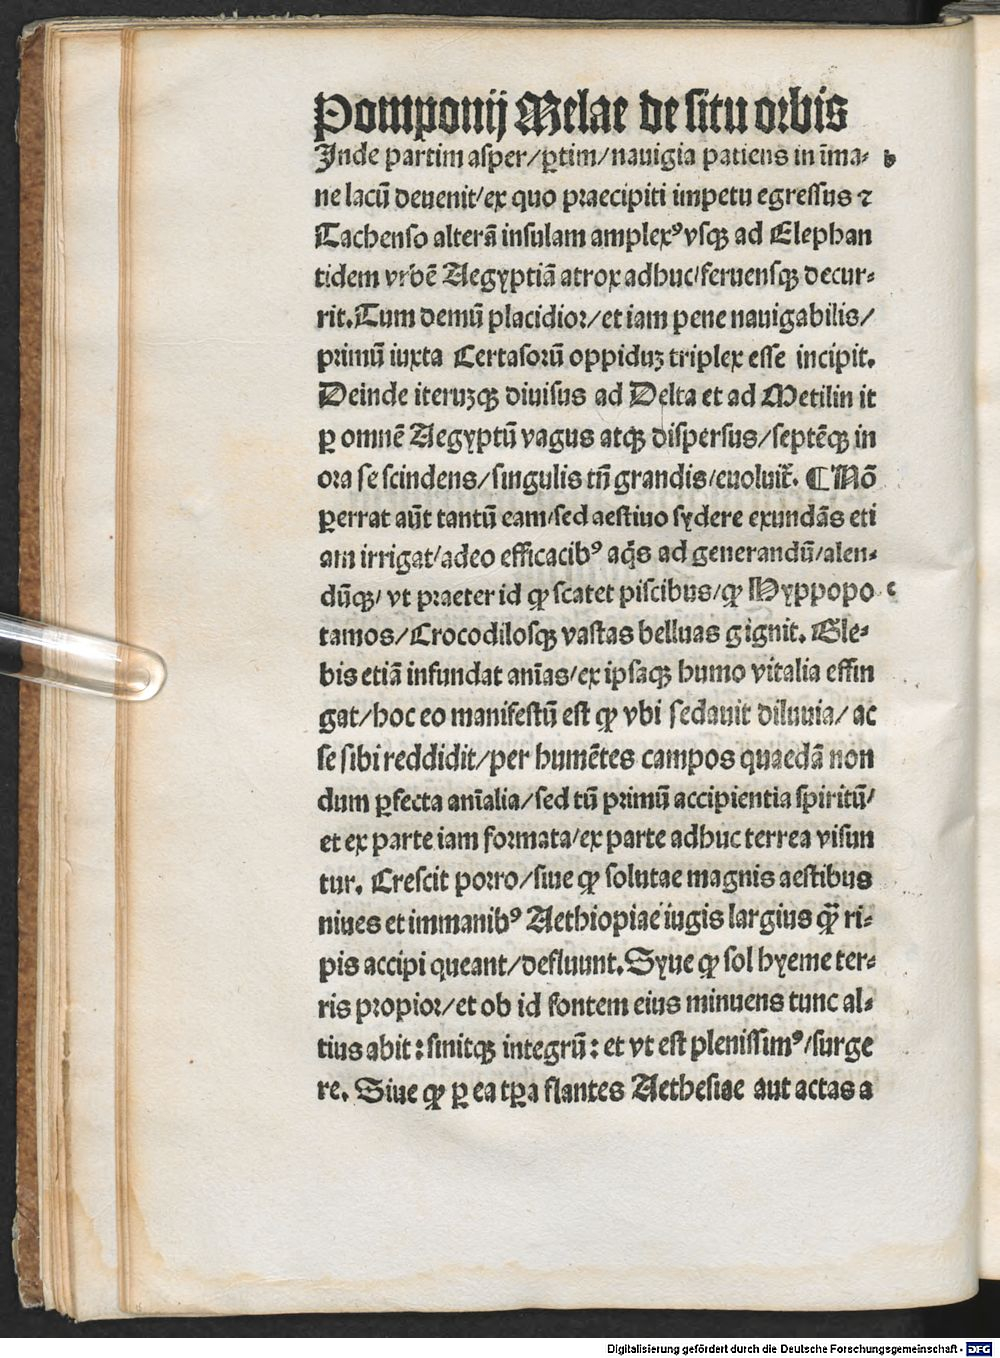 Pomponij Melae de situ orbis
Inde partim asper/ ꝑtim/ nauigia patiens in īma- b
ne lacū deuenit/ ex quo praecipiti impetu egressus ⁊
Tachenso alterā insulam amplexꝰ vsqꝫ ad Elephan
tidem vrbē Aegyptiā atrox adhuc/ feruensqꝫ decur-
rit. Tum demū placidior/ et iam pene nauigabilis/
primū iuxta Certasorū oppiduꝫ triplex esse incipit.
Deinde iteruꝫqꝫ diuisus ad Delta et ad Metilin it
ꝑ omnē Aegyptū vagus atqꝫ dispersus/ septēqꝫ in
ora se scindens/ singulis tñ grandis/ euoluit̃. ¶ Nō
ꝑerrat aūt tantū eam/ sed aestiuo sydere exundās eti
am irrigat/ adeo efficacibꝰ aq̄s ad generandū/ alen-
dūqꝫ/ vt praeter id qꝫ scatet piscibus/ qꝫ Hyppopo c
tamos/ Crocodilosqꝫ vastas belluas gignit. Gle-
bis etiā infundat anīas/ ex ipsaqꝫ humo vitalia effin
gat/ hoc eo manifestū est qꝫ vbi sedauit diluuia/ ac
se sibi reddidit/ per humētes campos quaedā non
dum ꝑfecta anīalia/ sed tū primū accipientia spiritū/
et ex parte iam formata/ ex parte adhuc terrea visun
tur. Crescit porro/ siue qꝫ solutae magnis aestibus
niues et immanibꝰ Aethiopiae iugis largius qꝫ̄ ri-
pis accipi queant/ defluunt. Syue qꝫ sol hyeme ter-
ris propior/ et ob id fontem eius minuens tunc al-
tius abit: sinitqꝫ integrū: et vt est plenissimꝰ/ surge
re. Siue qꝫ ꝑ ea tꝑa flantes Aethesiae aut actas a
Digitalisierung gefördert durch die Deutsche Forschungsgemeinschaft - DFG